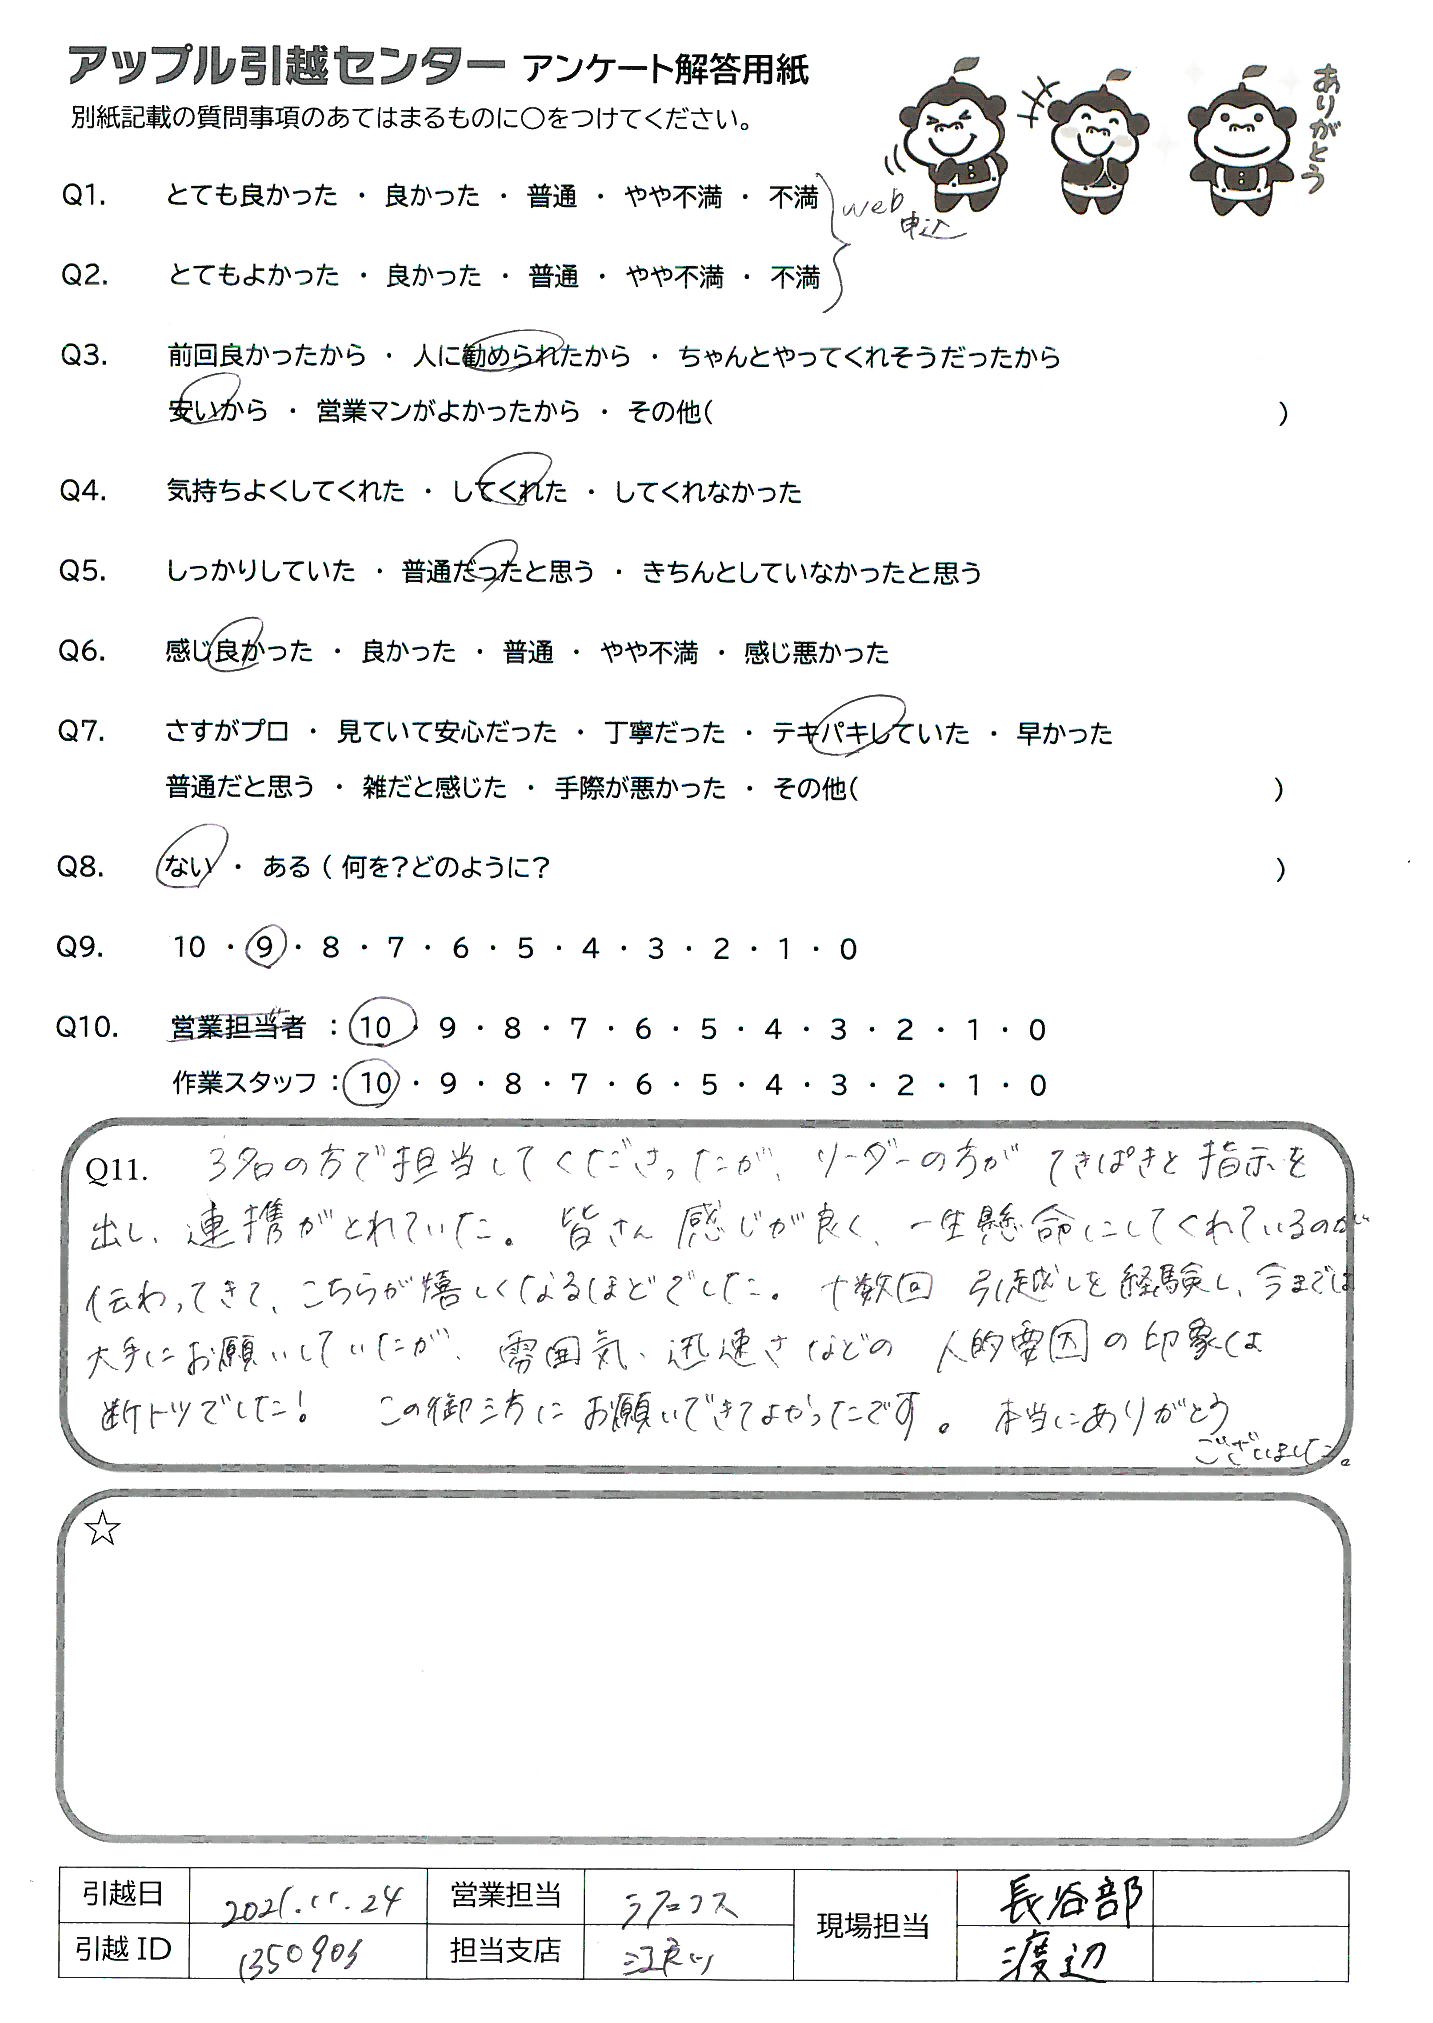 アップル引越センター アンケート解答用紙
ありがとう
別紙記載の質問事項のあてはまるものに○をつけてください。
Q1. とても良かった ・ 良かった ・ 普通 ・ やや不満 ・ 不満
web
申込
Q2. とてもよかった ・ 良かった ・ 普通 ・ やや不満 ・ 不満
Q3. 前回良かったから ・ 人に勧められたから ・ ちゃんとやってくれそうだったから
安いから ・ 営業マンがよかったから ・ その他( )
Q4. 気持ちよくしてくれた ・ してくれた ・ してくれなかった
Q5. しっかりしていた ・ 普通だったと思う ・ きちんとしていなかったと思う
Q6. 感じ良かった ・ 良かった ・ 普通 ・ やや不満 ・ 感じ悪かった
Q7. さすがプロ ・ 見ていて安心だった ・ 丁寧だった ・ テキパキしていた ・ 早かった
普通だと思う ・ 雑だと感じた ・ 手際が悪かった ・ その他( )
Q8. ない ・ ある ( 何を?どのように? )
Q9. 10 ・ 9 ・ 8 ・ 7 ・ 6 ・ 5 ・ 4 ・ 3 ・ 2 ・ 1 ・ 0
Q10. 営業担当者 : 10 ・ 9 ・ 8 ・ 7 ・ 6 ・ 5 ・ 4 ・ 3 ・ 2 ・ 1 ・ 0
作業スタッフ : 10 ・ 9 ・ 8 ・ 7 ・ 6 ・ 5 ・ 4 ・ 3 ・ 2 ・ 1 ・ 0
Q11. 3名の方で担当してくださったが、リーダーの方が てきぱきと指示を
出し、連携がとれていた。 皆さん感じが良く、一生懸命にしてくれているのが
伝わってきて、こちらが嬉しくなるほどでした。 十数回 引越しを経験し、今までは
大手にお願いしていたが、雰囲気、迅速さなどの 人的要因の印象は
断トツでした! この御三方に お願いできてよかったです。 本当にありがとう
ございました。
☆
引越日 2021.11.24 営業担当 現場担当 長谷部
引越 ID 1350903 担当支店 渡辺